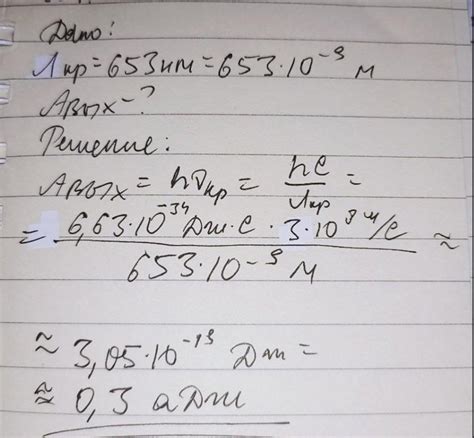 Дано:
λкр = 653 нм = 653·10⁻⁹ м
Aвых - ?
Решение:
Aвых = hνкр = hc/λкр =
= 6,63·10⁻³⁴ Дж·с · 3·10⁸ м/с / 653·10⁻⁹ м ≈
≈ 3,05·10⁻¹⁹ Дж =
≈ 0,3 аДж